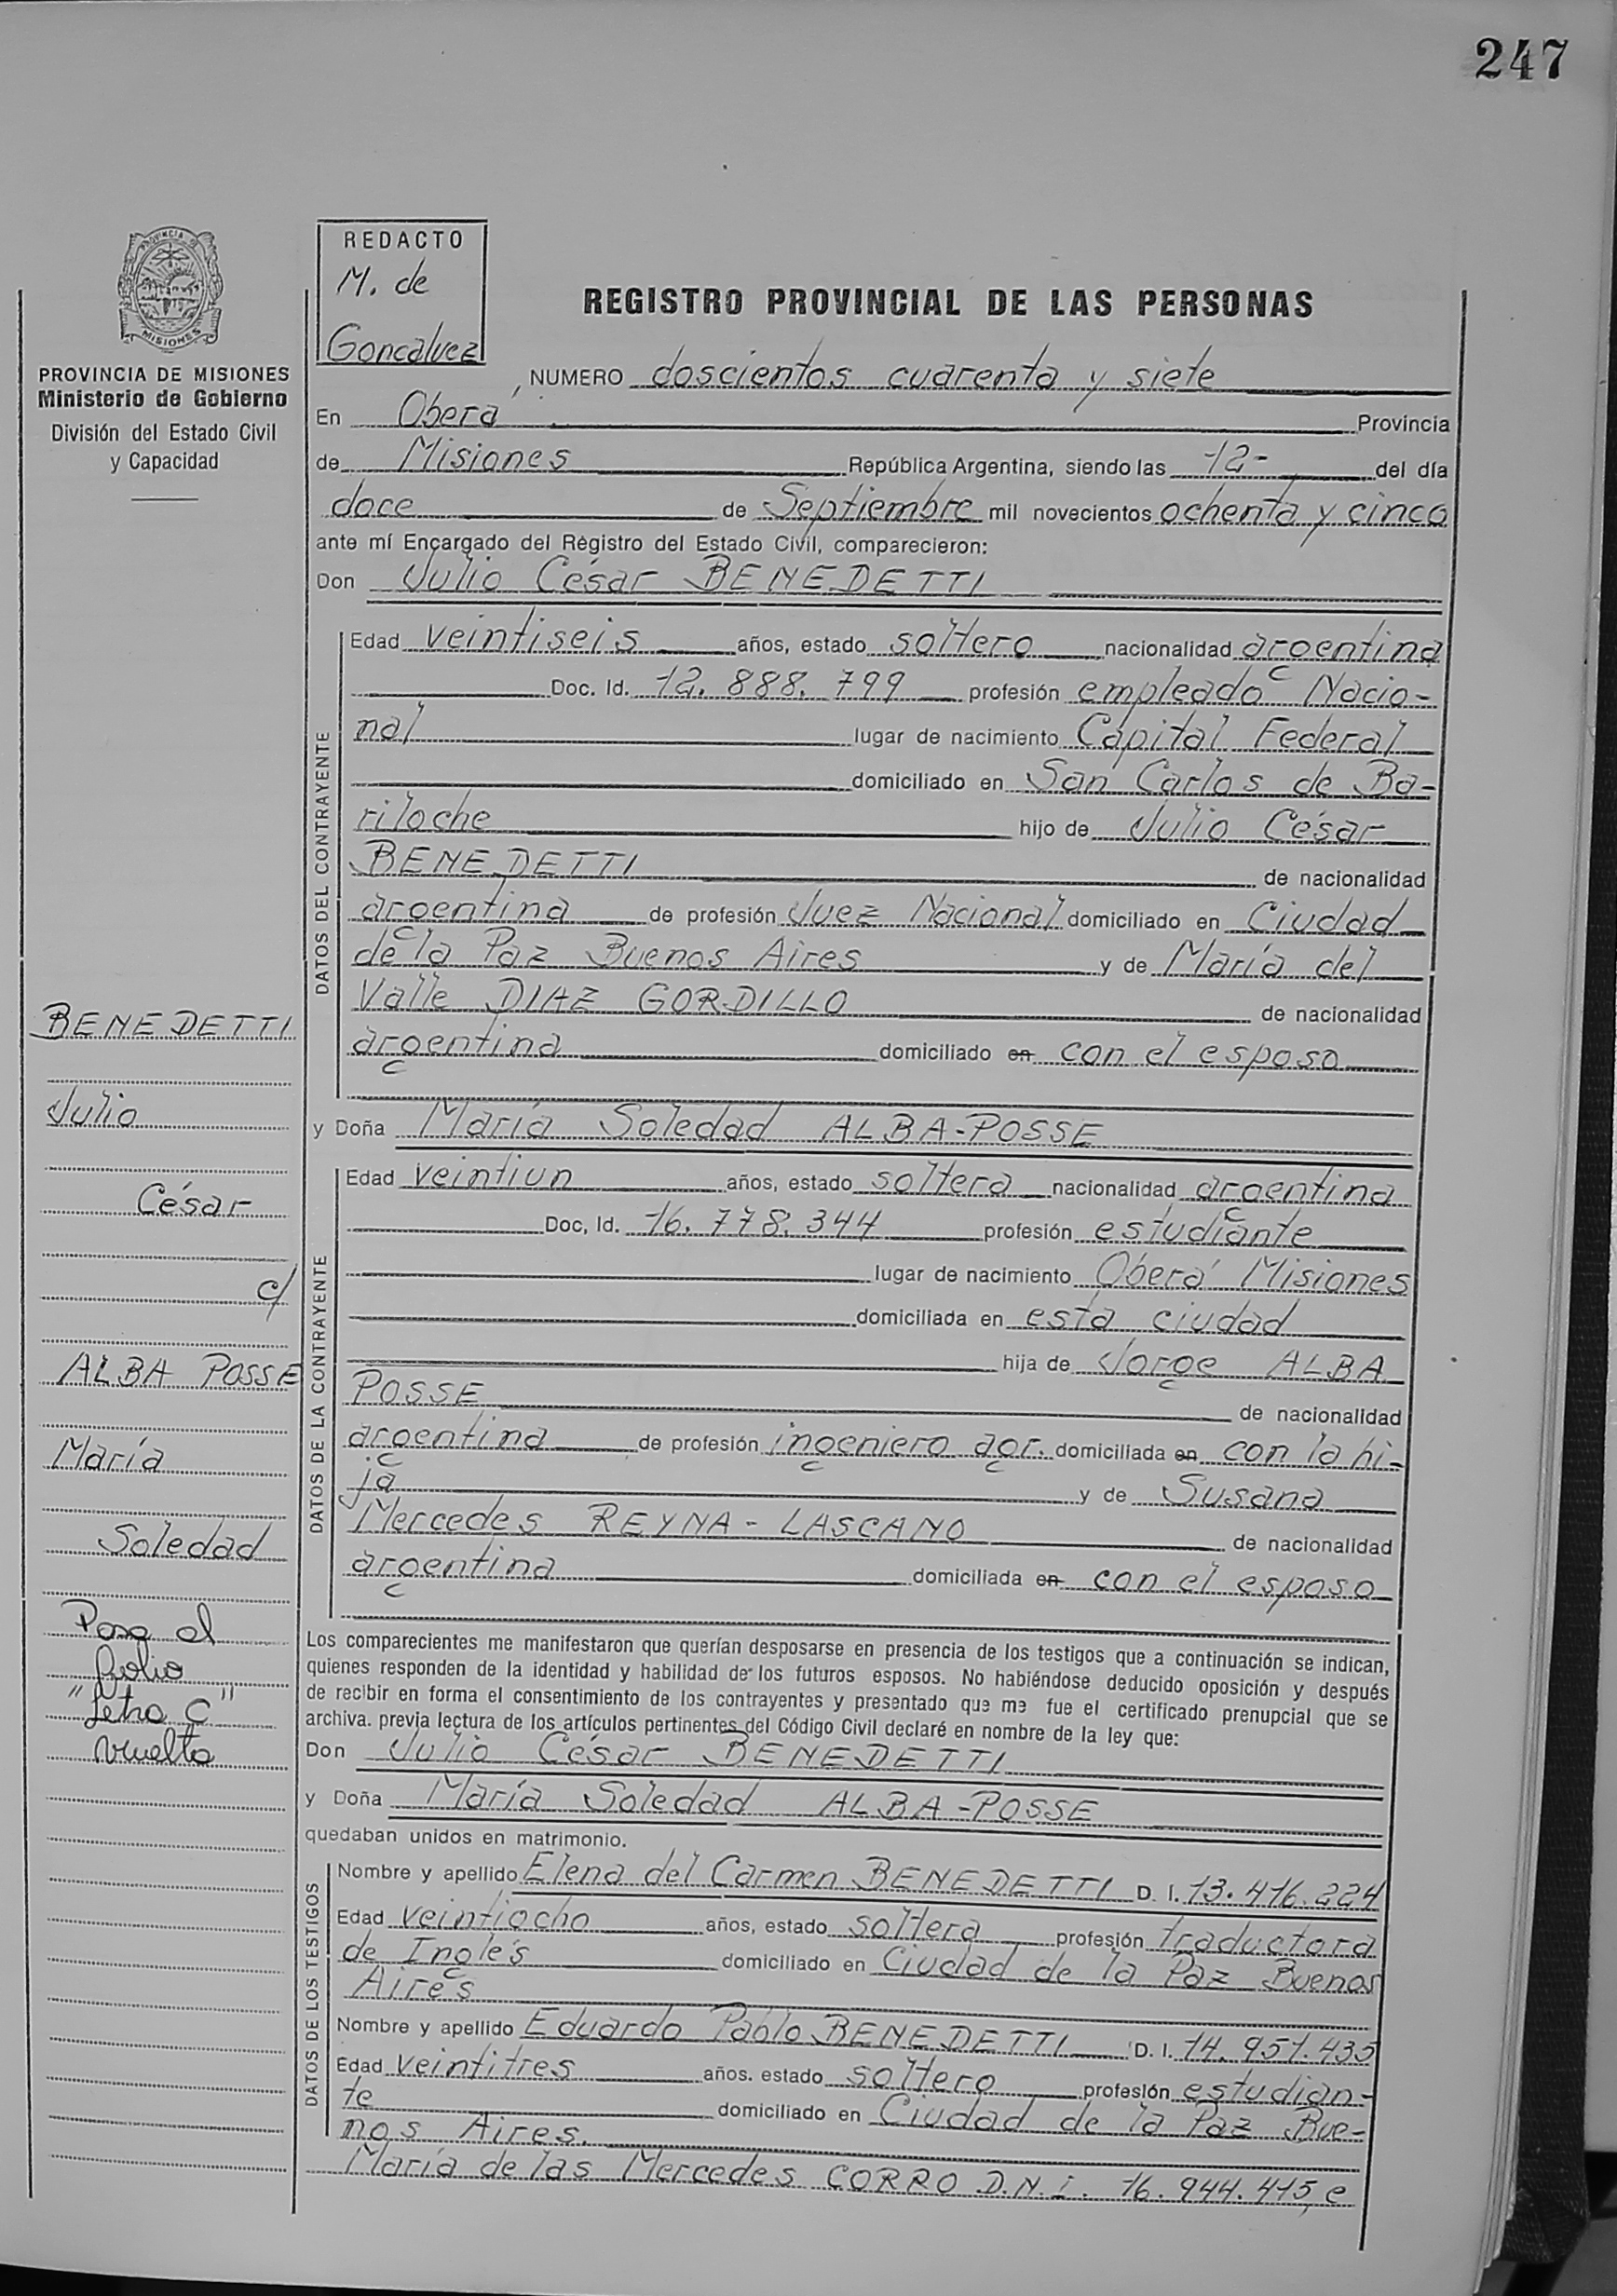 247
PROVINCIA DE
MISIONES
PROVINCIA DE MISIONES
Ministerio de Gobierno
División del Estado Civil
y Capacidad
REDACTO
M. de
Goncalvez
REGISTRO PROVINCIAL DE LAS PERSONAS
NUMERO doscientos cuarenta y siete
En Oberá Provincia
de Misiones República Argentina, siendo las 12- del día
doce de Septiembre mil novecientos ochenta y cinco
ante mí Encargado del Registro del Estado Civil, comparecieron:
Don Julio César BENEDETTI
DATOS DEL CONTRAYENTE
Edad veintiseis años, estado soltero nacionalidad argentina
Doc. Id. 12.888.799 profesión empleado Nacio-
nal lugar de nacimiento Capital Federal
domiciliado en San Carlos de Ba-
riloche hijo de Julio César
BENEDETTI de nacionalidad
argentina de profesión Juez Nacional domiciliado en Ciudad
de la Paz Buenos Aires y de María del
Valle DIAZ GORDILLO de nacionalidad
argentina domiciliado en con el esposo
y Doña María Soledad ALBA-POSSE
DATOS DE LA CONTRAYENTE
Edad veintiun años, estado soltera nacionalidad argentina
Doc, Id. 16.778.344 profesión estudiante
lugar de nacimiento Oberá Misiones
domiciliada en esta ciudad
hija de Jorge ALBA
POSSE de nacionalidad
argentina de profesión ingeniero agr. domiciliada en con la hi-
ja y de Susana
Mercedes REYNA - LASCANO de nacionalidad
argentina domiciliada en con el esposo
Los comparecientes me manifestaron que querían desposarse en presencia de los testigos que a continuación se indican,
quienes responden de la identidad y habilidad de los futuros esposos. No habiéndose deducido oposición y después
de recibir en forma el consentimiento de los contrayentes y presentado que me fue el certificado prenupcial que se
archiva. previa lectura de los artículos pertinentes del Código Civil declaré en nombre de la ley que:
Don Julio César BENEDETTI
y Doña María Soledad ALBA-POSSE
quedaban unidos en matrimonio.
DATOS DE LOS TESTIGOS
Nombre y apellido Elena del Carmen BENEDETTI D. I. 13.416.224
Edad veintiocho años, estado soltera profesión traductora
de Inglés domiciliado en Ciudad de la Paz Buenos
Aires
Nombre y apellido Eduardo Pablo BENEDETTI D. I. 14.951.435
Edad veintitres años. estado soltero profesión estudian-
te domiciliado en Ciudad de la Paz Bue-
nos Aires.
María de las Mercedes CORRO D.N.i. 16.944.415, e
BENEDETTI
Julio
César
c/
ALBA POSSE
María
Soledad
Pasa al
folio
"Letra C"
vuelta